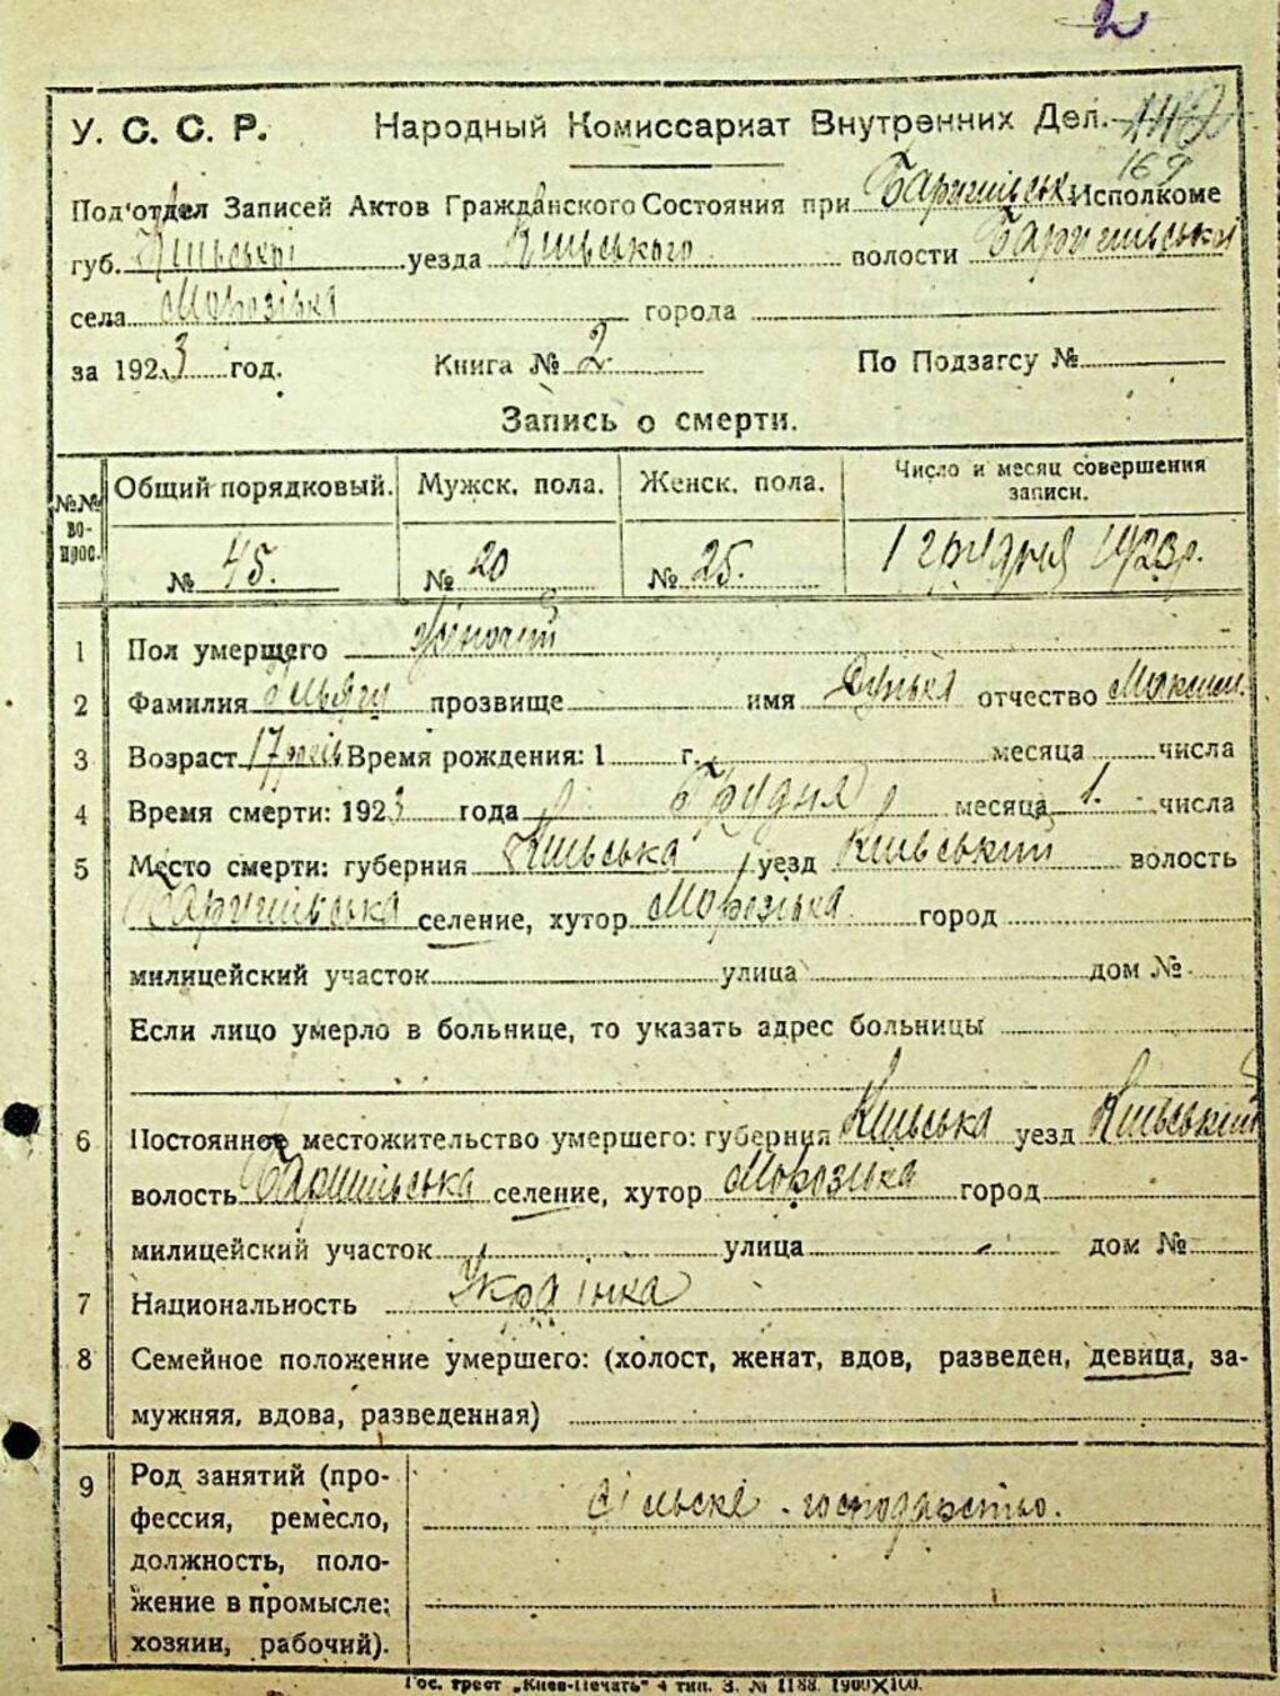 2
У. С. С. Р. Народный Комиссариат Внутренних Дел.
169
Под'отдел Записей Актов Гражданского Состояния при Баришільськ. Исполкоме
губ. Київської уезда Київського волости Баришільської
села Морозівка города
за 1923 год. Книга № 2 По Подзагсу №
Запись о смерти.
№№ вопрос. Общий порядковый. Мужск. пола. Женск. пола. Число и месяц совершения записи.
№ 45. № 20 № 25. 1 грудня 1923 р.
1 Пол умершего Жіночий
2 Фамилия прозвище имя Дунька отчество Максим.
3 Возраст 17 літ Время рождения: 1 г. месяца числа
4 Время смерти: 1923 года Грудня месяца 1. числа
5 Место смерти: губерния Київська уезд Київський волость
Баришільська селение, хутор Морозівка город
милицейский участок улица дом №
Если лицо умерло в больнице, то указать адрес больницы
6 Постоянное местожительство умершего: губерния Київська уезд Київський
волость Баришільська селение, хутор Морозівка город
милицейский участок улица дом №
7 Национальность Українка
8 Семейное положение умершего: (холост, женат, вдов, разведен, девица, за-
мужняя, вдова, разведенная)
9 Род занятий (про-
фессия, ремесло,
должность, поло-
жение в промысле;
хозяин, рабочий).
Сільске - господарство.
Гос. трест „Киев-Печать" 4 тип. З. № 1188. 1900X100.